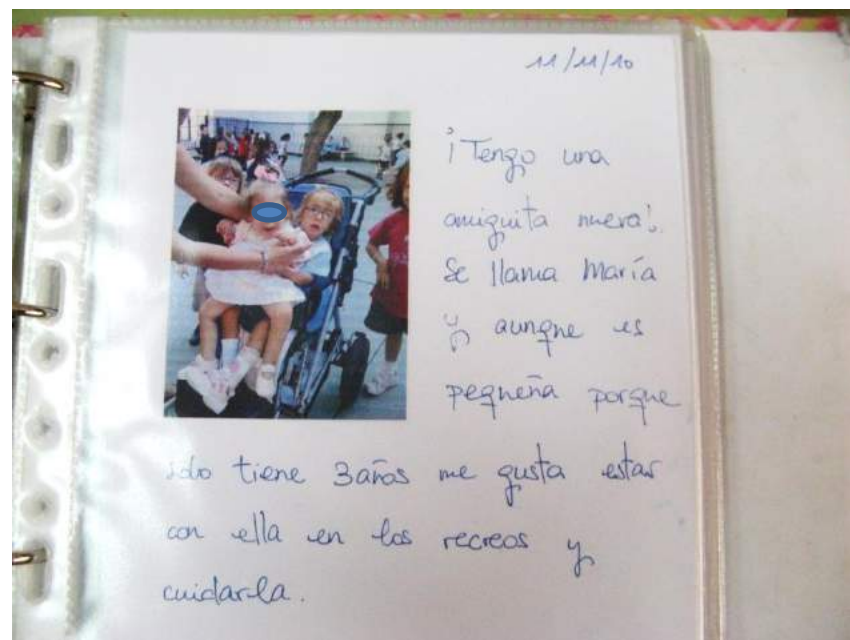 11/11/10
¡Tengo una
amiguita nueva!.
Se llama María
y aunque es
pequeña porque
solo tiene 3 años me gusta estar
con ella en los recreos y
cuidarla.